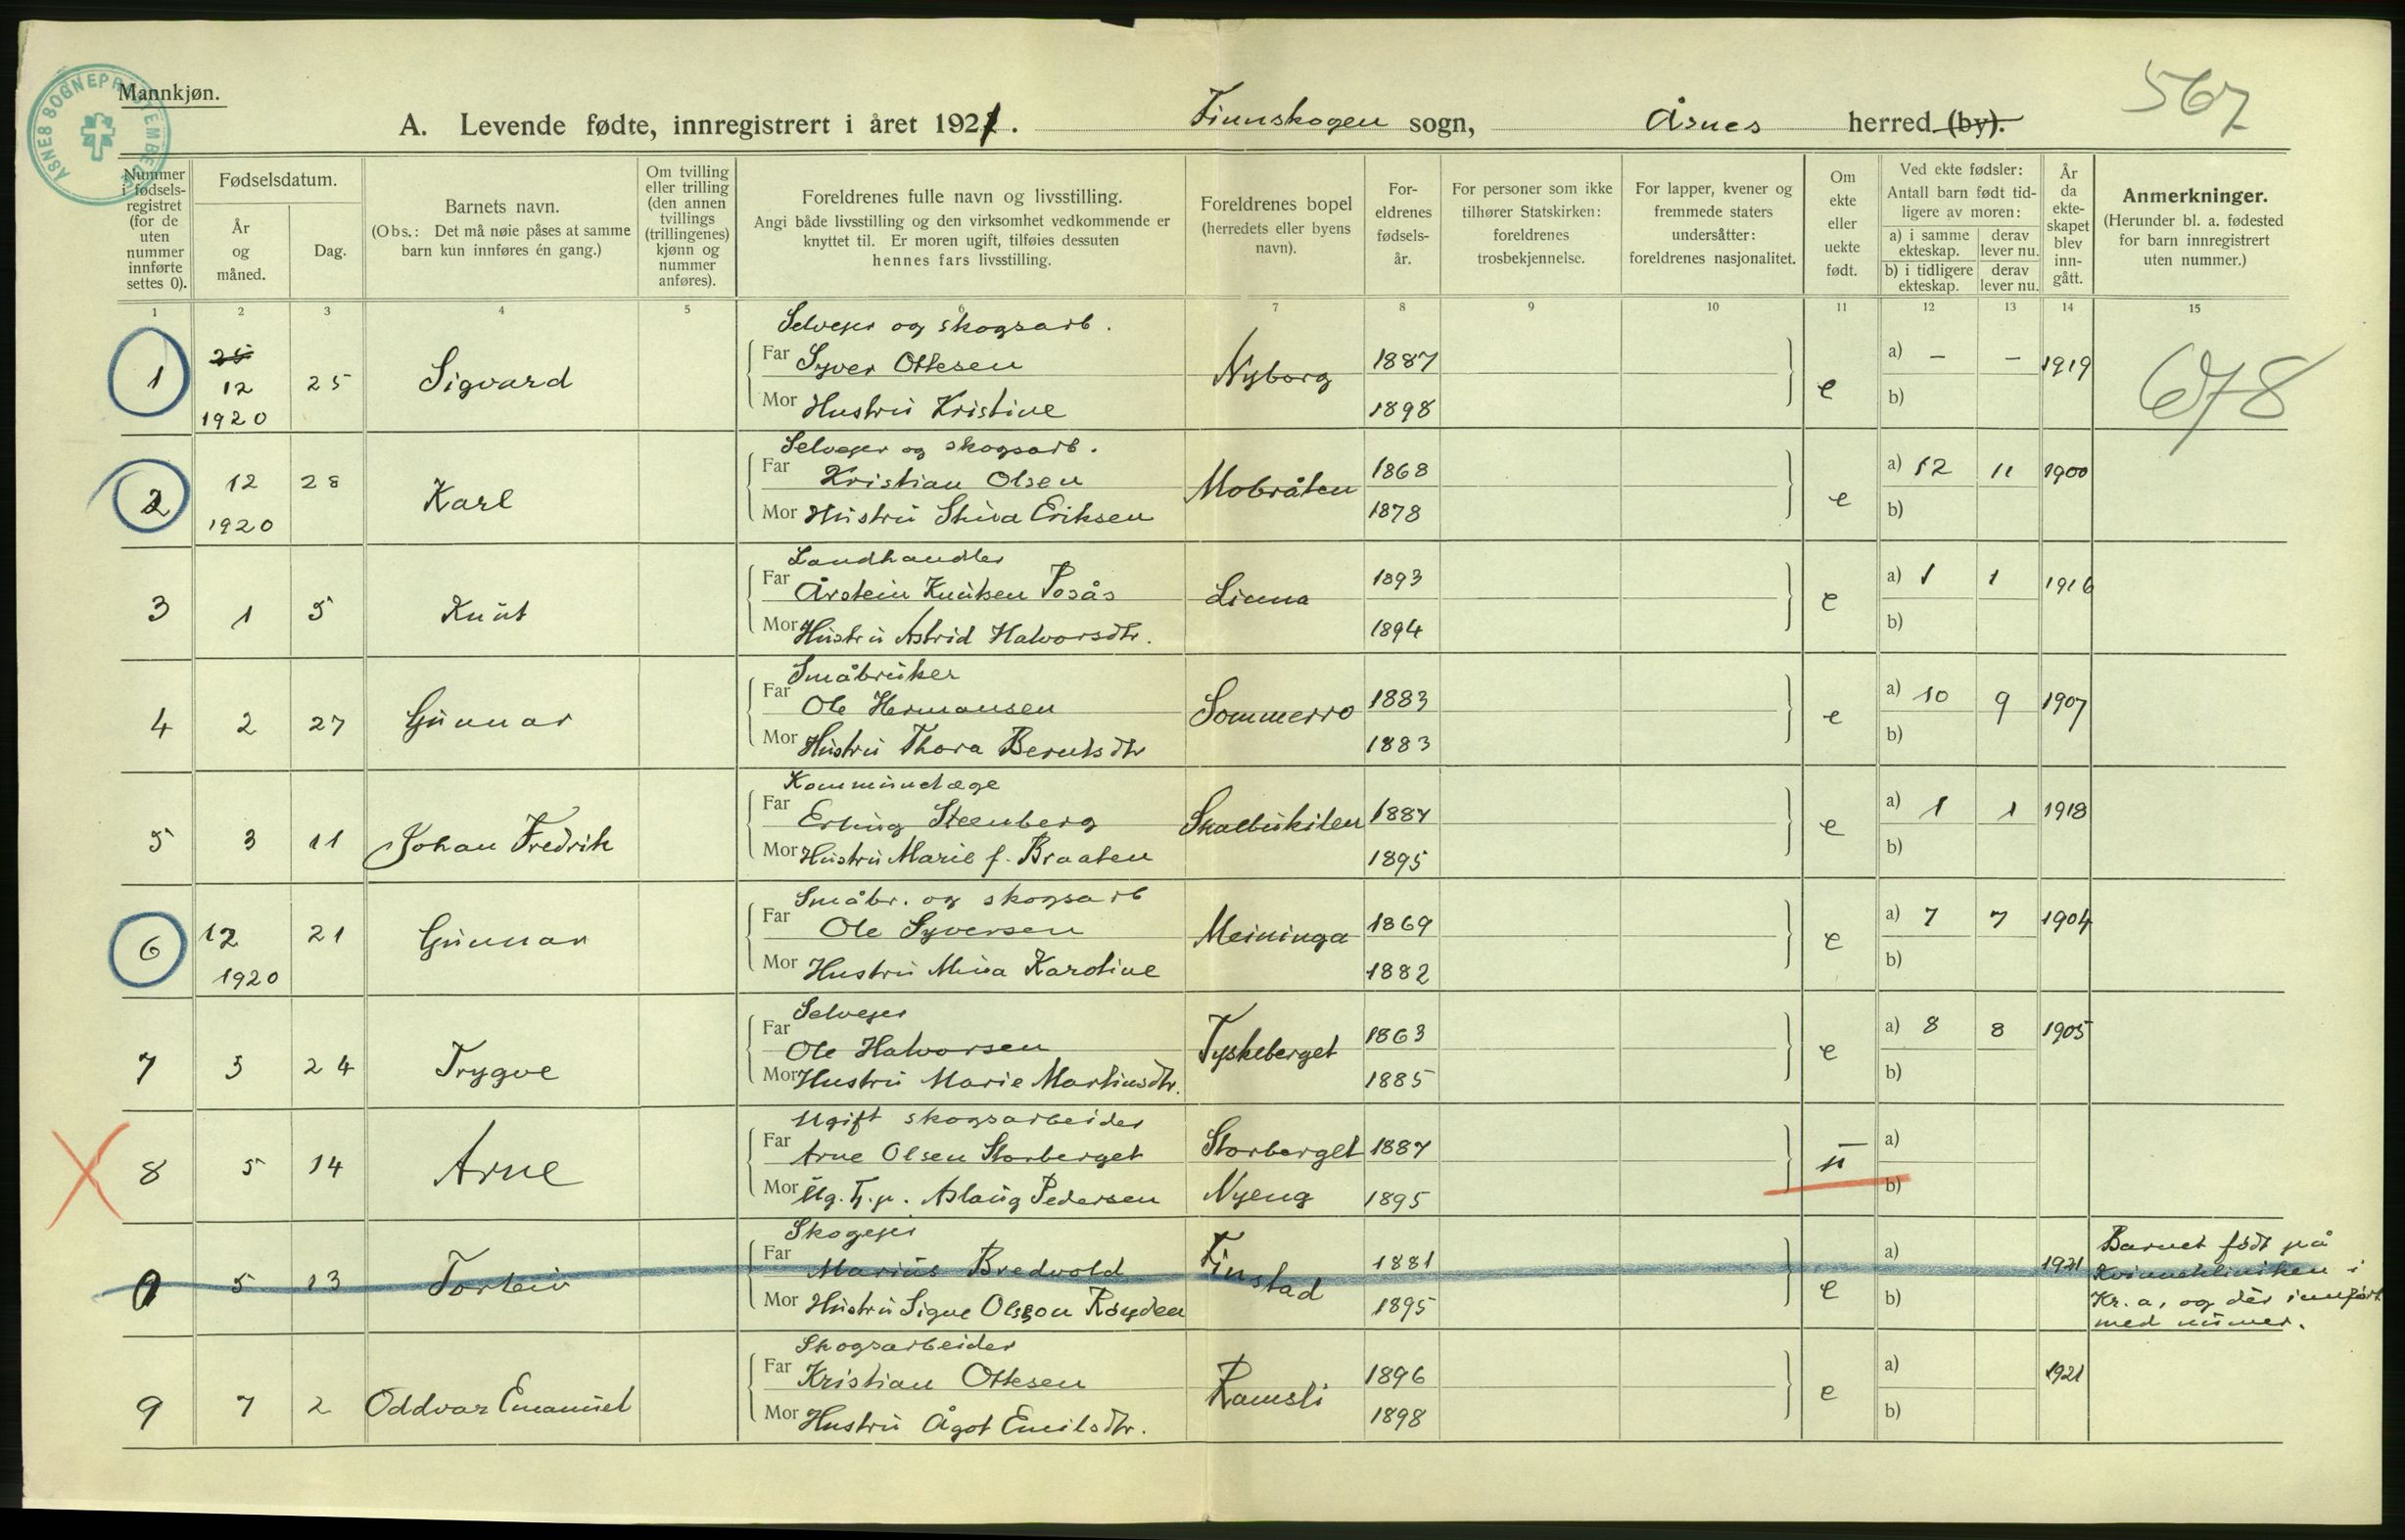 ÅSNES SOGNEPRESTEMBEDE
Mannkjøn.
567
A. Levende fødte, innregistrert i året 1921. Finnskogen sogn, Åsnes herred (by).
Nummer i fødsels-registret (for de uten nummer innførte settes 0).
Fødselsdatum.
År og måned.
Dag.
Barnets navn.
(Obs.: Det må nøie påses at samme barn kun innføres én gang.)
Om tvilling eller trilling (den annen tvillings (trillingenes) kjønn og nummer anføres).
Foreldrenes fulle navn og livsstilling.
Angi både livsstilling og den virksomhet vedkommende er knyttet til. Er moren ugift, tilføies dessuten hennes fars livsstilling.
Foreldrenes bopel (herredets eller byens navn).
For-eldrenes fødsels-år.
For personer som ikke tilhører Statskirken: foreldrenes trosbekjennelse.
For lapper, kvener og fremmede staters undersåtter: foreldrenes nasjonalitet.
Om ekte eller uekte født.
Ved ekte fødsler: Antall barn født tid-ligere av moren:
a) i samme ekteskap. derav lever nu.
b) i tidligere ekteskap. derav lever nu.
År da ekte-skapet blev inn-gått.
Anmerkninger.
(Herunder bl. a. fødested for barn innregistrert uten nummer.)
1 2 3 4 5 6 7 8 9 10 11 12 13 14 15
Selvejer og skogsarb.
1 25 12 1920 25 Sigvard Far Syver Ottesen Nyborg 1887 e a) – – 1919 678
Mor Hustru Kristine 1898 b)
Selvejer og skogsarb.
2 12 1920 28 Karl Far Kristian Olsen Mobråten 1868 e a) 12 11 1900
Mor Hustru Stina Eriksen 1878 b)
Landhandler
3 1 5 Knut Far Årstein Knutsen Posås Linna 1893 e a) 1 1 1916
Mor Hustru Astrid Halvorsdtr. 1894 b)
Småbruker
4 2 27 Gunnar Far Ole Hermansen Sommerro 1883 e a) 10 9 1907
Mor Hustru Thora Berntsdtr 1883 b)
Kommunelæge
5 3 11 Johan Fredrik Far Erling Steenberg Skalbukilen 1887 e a) 1 1 1918
Mor Hustru Marie f. Braaten 1895 b)
Småbr. og skogsarb
6 12 1920 21 Gunnar Far Ole Syversen Meininga 1869 e a) 7 7 1904
Mor Hustru Mina Karoline 1882 b)
Selvejer
7 3 24 Trygve Far Ole Halvorsen Tyskeberget 1863 e a) 8 8 1905
Mor Hustru Marie Martinsdtr. 1885 b)
Ugift skogsarbeider
8 5 14 Arne Far Arne Olsen Storberget Storberget 1887 u a)
Mor Ug. Tj.p. Aslaug Pedersen Nyeng 1895 b)
Skogejer
0 5 13 Torleiv Far Marius Bredvold Finstad 1881 e a) 1921 Barnet født på Kvinneklinikken i
Mor Hustru Signe Olsson Røyden 1895 b) Kr.a, og dèr innført med numer.
Skogsarbeider
9 7 2 Oddvar Emanuel Far Kristian Ottesen Ramsli 1896 e a) 1921
Mor Hustru Ågot Emilsdtr. 1898 b)